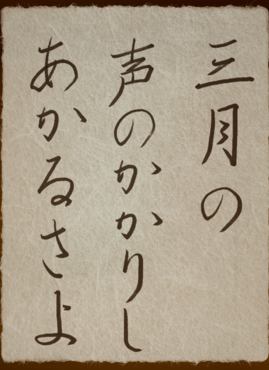 三月の
声のかかりし
あかるさよ